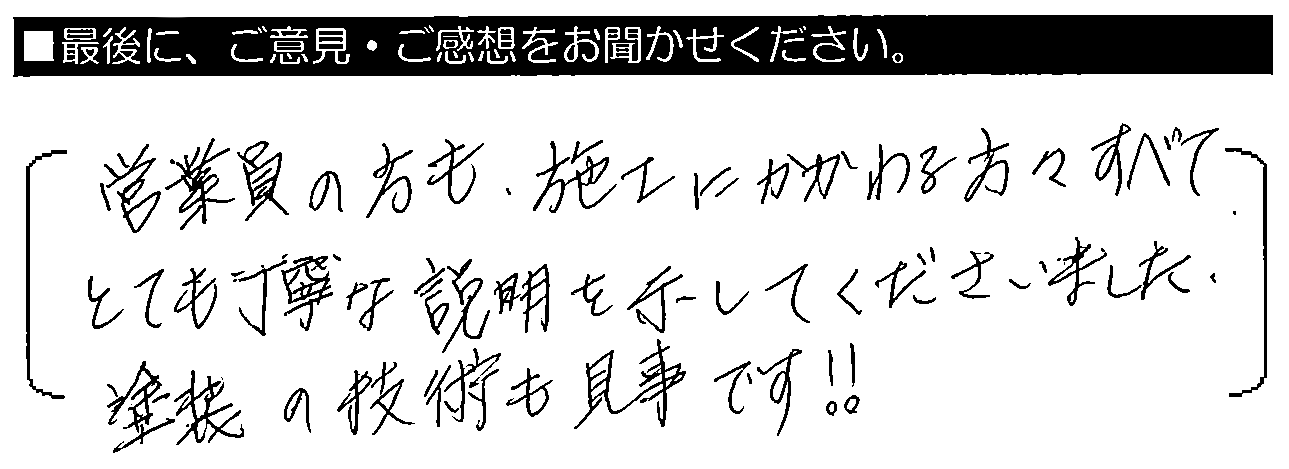 ■最後に、ご意見・ご感想をお聞かせください。
営業員の方も、施工にかかわる方々すべて
とても丁寧な説明を示してくださいました、
塗装の技術も見事です!!